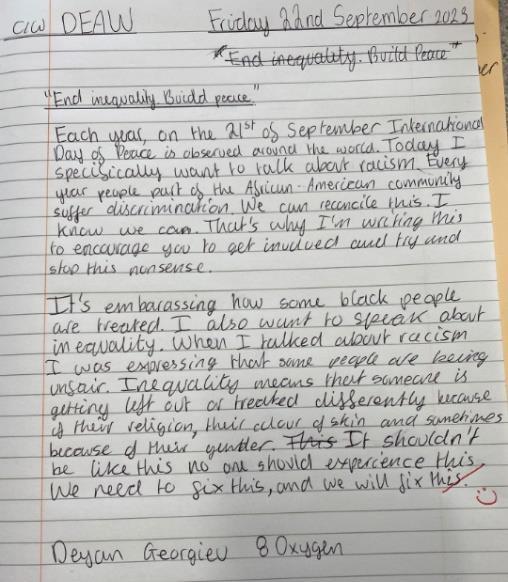 C/W DEAW Friday 22nd September 2023
"End inequality. Build Peace"
"End inequality. Buidd peace"
Each year, on the 21st of September International
Day of Peace is observed around the world. Today I
specisically want to talk about racism. Every
year people part of the African-American community
suffer discrimination. We can reconcile this. I
know we can. That's why I'm writing this
to encourage you to get involved and try and
stop this nonsense.
It's embarassing how some black people
are treated. I also want to speak about
inequality. When I talked about racism
I was expressing that some people are being
unfair. Inequality means that someone is
getting left out or treated differently because
of their religion, their colour of skin and sometimes
because of their gender. This It shouldn't
be like this no one should experience this.
We need to fix this, and we will fix this.
Deyan Georgiev 8 Oxygen
er